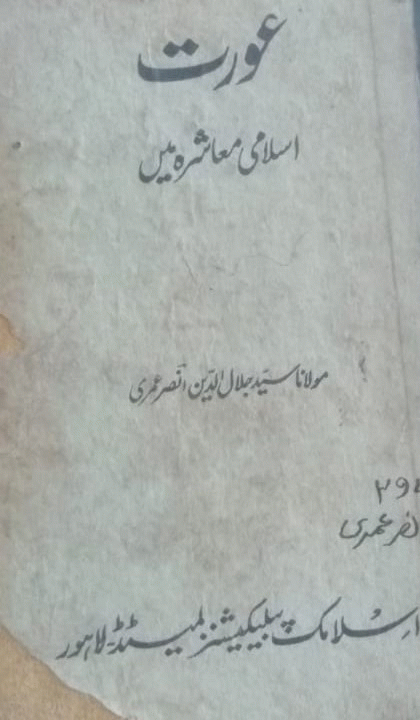 عورت
اسلامی معاشرہ میں
مولانا سیّد جلال الدّین انصر عمری
۲۹۷
نصر عمری
اسلامک پبلیکیشنز لمیٹڈ۔ لاہور